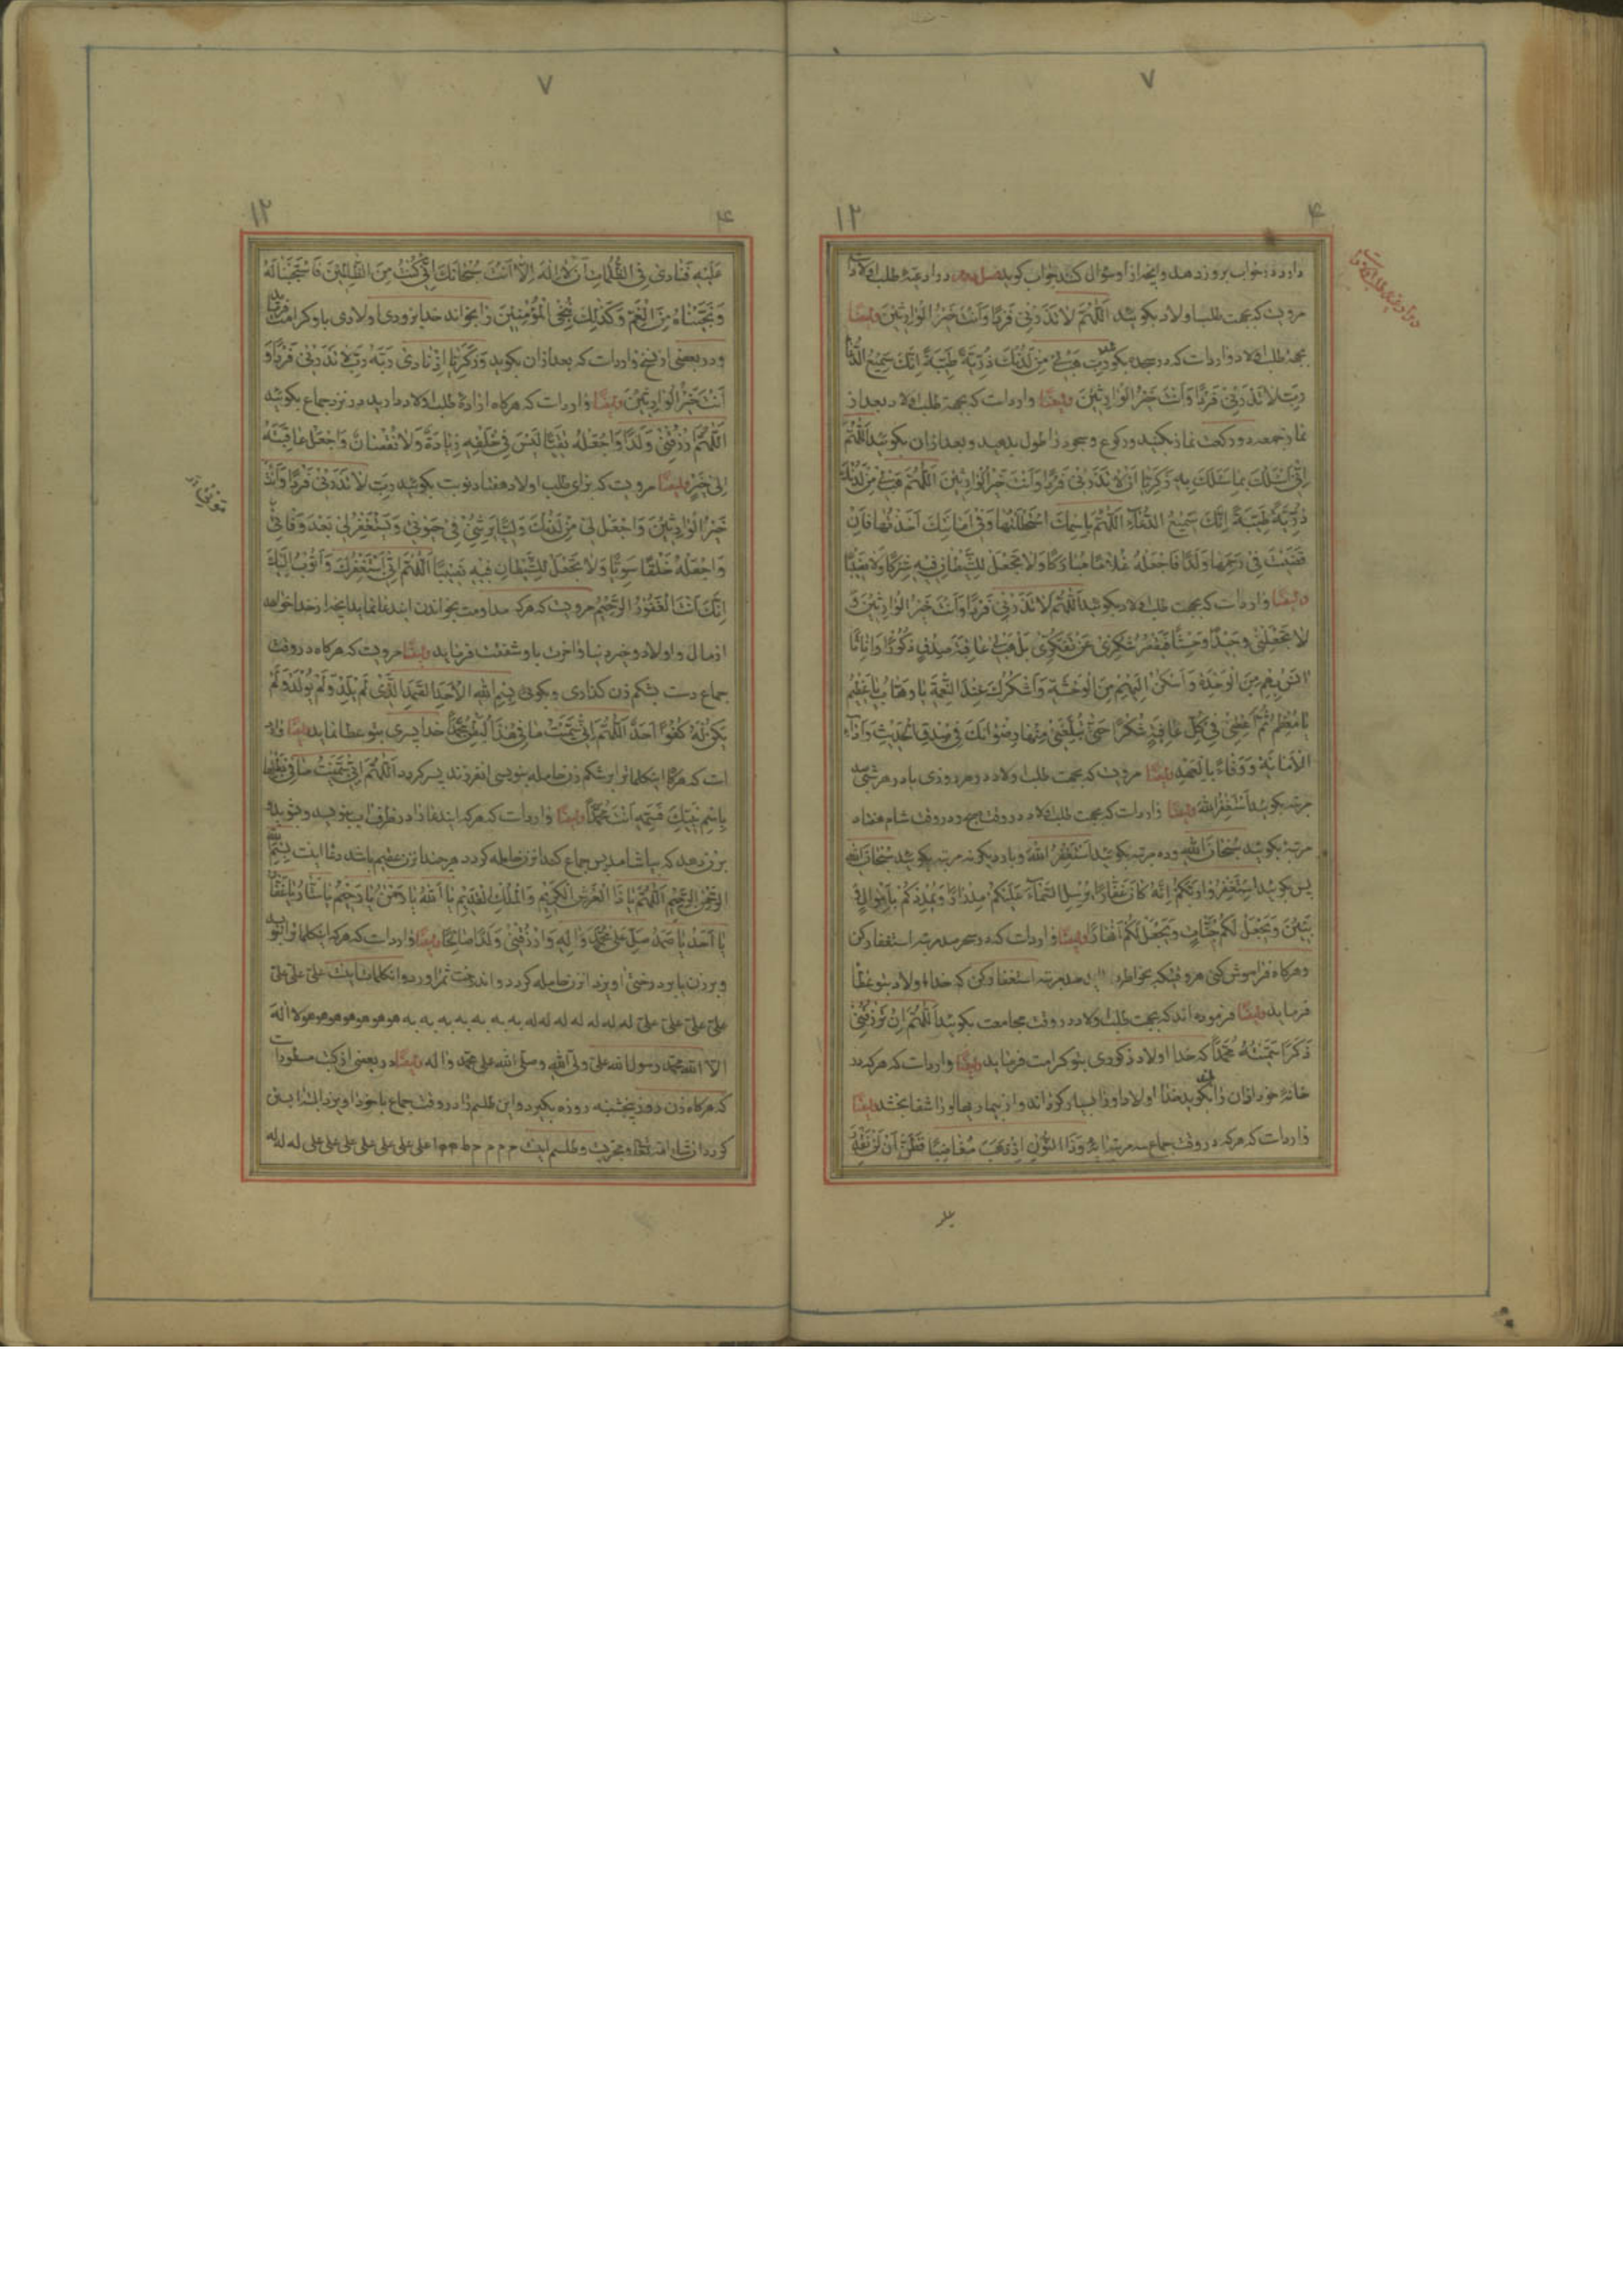 ۷
۴
۱۲
دارد در خواب بروز دهد و آنچه از او سؤال کنند جواب کوید فصل در ادعیهٔ طلب اولاد
مرویت که بجهت طلب اولاد بکویید اَللّٰهُمَّ لا تَذَرْنی فَرْدًا وَاَنْتَ خَیْرُ الْوارِثینَ وایضًا
بجهة طلب اولاد وارد است که در سجده بکوید رَبِّ هَبْ لی مِنْ لَدُنْكَ ذُرِّیَّةً طَیِّبَةً اِنَّكَ سَمیعُ الدُّعاءِ
رَبِّ لا تَذَرْنی فَرْدًا وَاَنْتَ خَیْرُ الْوارِثینَ وایضًا وارد است که بجهة طلب اولاد بعد از
نماز جمعه دو رکعت نماز بکنید و رکوع و سجود را طول بدهید و بعد از ان بکویید اَللّٰهُمَّ
اِنّی اَسْئَلُكَ بِما سَئَلَكَ بِهِ زَکَرِیّا اَنْ لا تَذَرْنی فَرْدًا وَاَنْتَ خَیْرُ الْوارِثینَ اَللّٰهُمَّ هَبْ لی مِنْ لَدُنْكَ
ذُرِّیَّةً طَیِّبَةً اِنَّكَ سَمیعُ الدُّعاءِ اَللّٰهُمَّ بِاسْمِكَ اسْتَحْلَلْتُها وَفی اَمانَتِكَ اَخَذْتُها فَاِنْ
قَضَیْتَ فی رَحِمِها وَلَدًا فَاجْعَلْهُ غُلامًا مُبارَکًا وَلا تَجْعَلْ لِلشَّیْطانِ فیهِ شِرْکًا وَلا نَصیبًا
وایضًا وارد است که بجهت طلب اولاد بکویید اَللّٰهُمَّ لا تَذَرْنی فَرْدًا وَاَنْتَ خَیْرُ الْوارِثینَ وَ
لا تَجْعَلْنی وَحیدًا وَحِشًا فَیَقْصُرَ شُکْری عَنْ تَفَکُّری بَلْ هَبْ لی عاقِبَةَ صِدْقٍ ذُکُورًا وَاِناثًا
انَسُ بِهِمْ مِنَ الْوَحْدَةِ وَاَسْکُنُ اِلَیْهِمْ مِنَ الْوَحْشَةِ وَاَشْکُرُكَ عِنْدَ النِّعْمَةِ یا وَهّابُ یا عَظیمُ
یا مُعْظِمُ ثُمَّ اَعْطِنی فی کُلِّ عافِیَةٍ شُکْرًا حَتّی تُبَلِّغَنی مِنْها رِضْوانَكَ فی صِدْقِ الْحَدیثِ وَاَداءِ
الْاَمانَةِ وَوَفاءً بِالْعَهْدِ وایضًا مرویت که بجهت طلب اولاد در هر روزی یا در هر شبی صد
مرتبه بکویید اَسْتَغْفِرُ اللهَ وایضًا وارد است که بجهت طلب اولاد در وقت صبح و در وقت شام هفتاد
مرتبه بکویید سُبْحانَ اللهِ و ده مرتبه بکویید اَسْتَغْفِرُ اللهَ و باردیکر نه مرتبه بکویید سُبْحانَ اللهِ
پس بکویید اِسْتَغْفِرُوا رَبَّکُمْ اِنَّهُ کانَ غَفّارًا یُرْسِلِ السَّماءَ عَلَیْکُمْ مِدْرارًا وَیُمْدِدْکُمْ بِاَمْوالٍ وَ
بَنینَ وَیَجْعَلْ لَکُمْ جَنّاتٍ وَیَجْعَلْ لَکُمْ اَنْهارًا وایضًا وارد است که در سحر صد مرتبه استغفار کن
و هرکاه فراموش کنی هر وقتیکه بخاطرت صد مرتبه استغفار کن که خدا اولاد بتو عطا
فرماید وایضًا فرموده اند که بجهت طلب اولاد در وقت مجامعت بکویید اَللّٰهُمَّ اِنْ تَرْزُقْنی
ذَکَرًا سَمَّیْتُهُ مُحَمَّدًا که خدا اولاد ذکوری بتو کرامت فرماید وایضًا وارد است که هرکه در
خانهٔ خود اذان را بلند بکوید خدا اولاد او را بسیار کرداند و از بیماریها او را شفا بخشد وایضًا
وارد است که هرکه در وقت جماع سه مرتبه ایهٔ وَذَا النُّونِ اِذْ ذَهَبَ مُغاضِبًا فَظَنَّ اَنْ لَنْ نَقْدِرَ
۷
۴
۱۲
عَلَیْهِ فَنادی فِی الظُّلُماتِ اَنْ لا اِلٰهَ اِلّا اَنْتَ سُبْحانَكَ اِنّی کُنْتُ مِنَ الظّالِمینَ فَاسْتَجَبْنا لَهُ
وَنَجَّیْناهُ مِنَ الْغَمِّ وَکَذٰلِكَ نُنْجِی الْمُؤْمِنینَ را بخواند خدا بزودی اولادی باو کرامت فرماید
و در بعضی از نسخ وارد است که بعد از ان بکوید وَزَکَرِیّا اِذْ نادی رَبَّهُ رَبِّ لا تَذَرْنی فَرْدًا وَ
اَنْتَ خَیْرُ الْوارِثینَ وایضًا وارد است که هرکاه ارادهٔ طلب اولاد دارید در نزد جماع بکویید
اَللّٰهُمَّ ارْزُقْنی وَلَدًا وَاجْعَلْهُ تَقِیًّا لَیْسَ فی خَلْقِهِ زِیادَةٌ وَلا نُقْصانٌ وَاجْعَلْ عاقِبَتَهُ
اِلی خَیْرٍ وایضًا مرویت که برای طلب اولاد هفتاد نوبت بکویید رَبِّ لا تَذَرْنی فَرْدًا وَاَنْتَ
خَیْرُ الْوارِثینَ وَاجْعَلْ لی مِنْ لَدُنْكَ وَلِیًّا یَرِثُنی فی حَیوتی وَیَسْتَغْفِرُ لی بَعْدَ وَفاتی
وَاجْعَلْهُ خَلْقًا سَوِیًّا وَلا تَجْعَلْ لِلشَّیْطانِ فیهِ نَصیبًا اَللّٰهُمَّ اِنّی اَسْتَغْفِرُكَ وَاَتُوبُ اِلَیْكَ
اِنَّكَ اَنْتَ الْغَفُورُ الرَّحیمُ مرویت که هرکه مداومت بخواندن ایندعا نماید انچه از خدا خواهد
از مال و اولاد و خیر دنیا و اخرت باو شفقت فرماید وایضًا مرویت که هرکاه در وقت
جماع دست بشکم زن کذاری و بکوئی بِسْمِ اللهِ الْاَحَدِ الصَّمَدِ الَّذی لَمْ یَلِدْ وَلَمْ یُولَدْ وَلَمْ
یَکُنْ لَهُ کُفُوًا اَحَدٌ اَللّٰهُمَّ اِنّی سَمَّیْتُ ما فی هٰذَا الْبَطْنِ مُحَمَّدًا خدا پسری بتو عطا نماید وایضًا وارد
است که هرکاه اینکلمات را بر شکم زن حامله بنویسی انفرزند پسر کردد اَللّٰهُمَّ اِنّی سَمَّیْتُ ما فی بَطْنِها
بِاسْمِ نَبِیِّكَ فَسَمِّهِ اَنْتَ مُحَمَّدًا وایضًا وارد است که هرکه ایندعا را در ظرف اب بنویسد و بشوید و
بزن دهد که بیاشامد پس جماع کند انزن حامله کردد هرچند انزن عقیم باشد دعا اینست بِسْمِ اللهِ
الرَّحْمٰنِ الرَّحیمِ اَللّٰهُمَّ یا ذَا الْعَرْشِ الْکَریمِ وَالْمُلْكِ الْقَدیمِ یا اَللهُ یا رَحْمٰنُ یا رَحیمُ یا سَتّارُ یا غَفّارُ
یا اَحَدُ یا صَمَدُ صَلِّ عَلی مُحَمَّدٍ وَالِهِ وَارْزُقْنی وَلَدًا صالِحًا وایضًا وارد است که هرکه اینکلمات را بنویسد
و بر زن یا بر درختی اویزد انزن حامله کردد و اندرخت ثمر اورد و انکلمات اینست علیّ علیّ علیّ
علیّ علیّ علیّ علیّ له له له له له له له به به به به به به به هو هو هو هو هو هو هو لا اله
الا الله محمد رسول الله علیّ ولیّ الله وصلّی الله علی محمد واله وایضًا در بعضی از کتب مسطور است
که هرکاه زن روز پنجشنبه روزه بکیرد و این طلسم را در وقت جماع باخود اویزد البته ابستن
کردد انشاء الله تعالی و مجربست و طلسم اینست